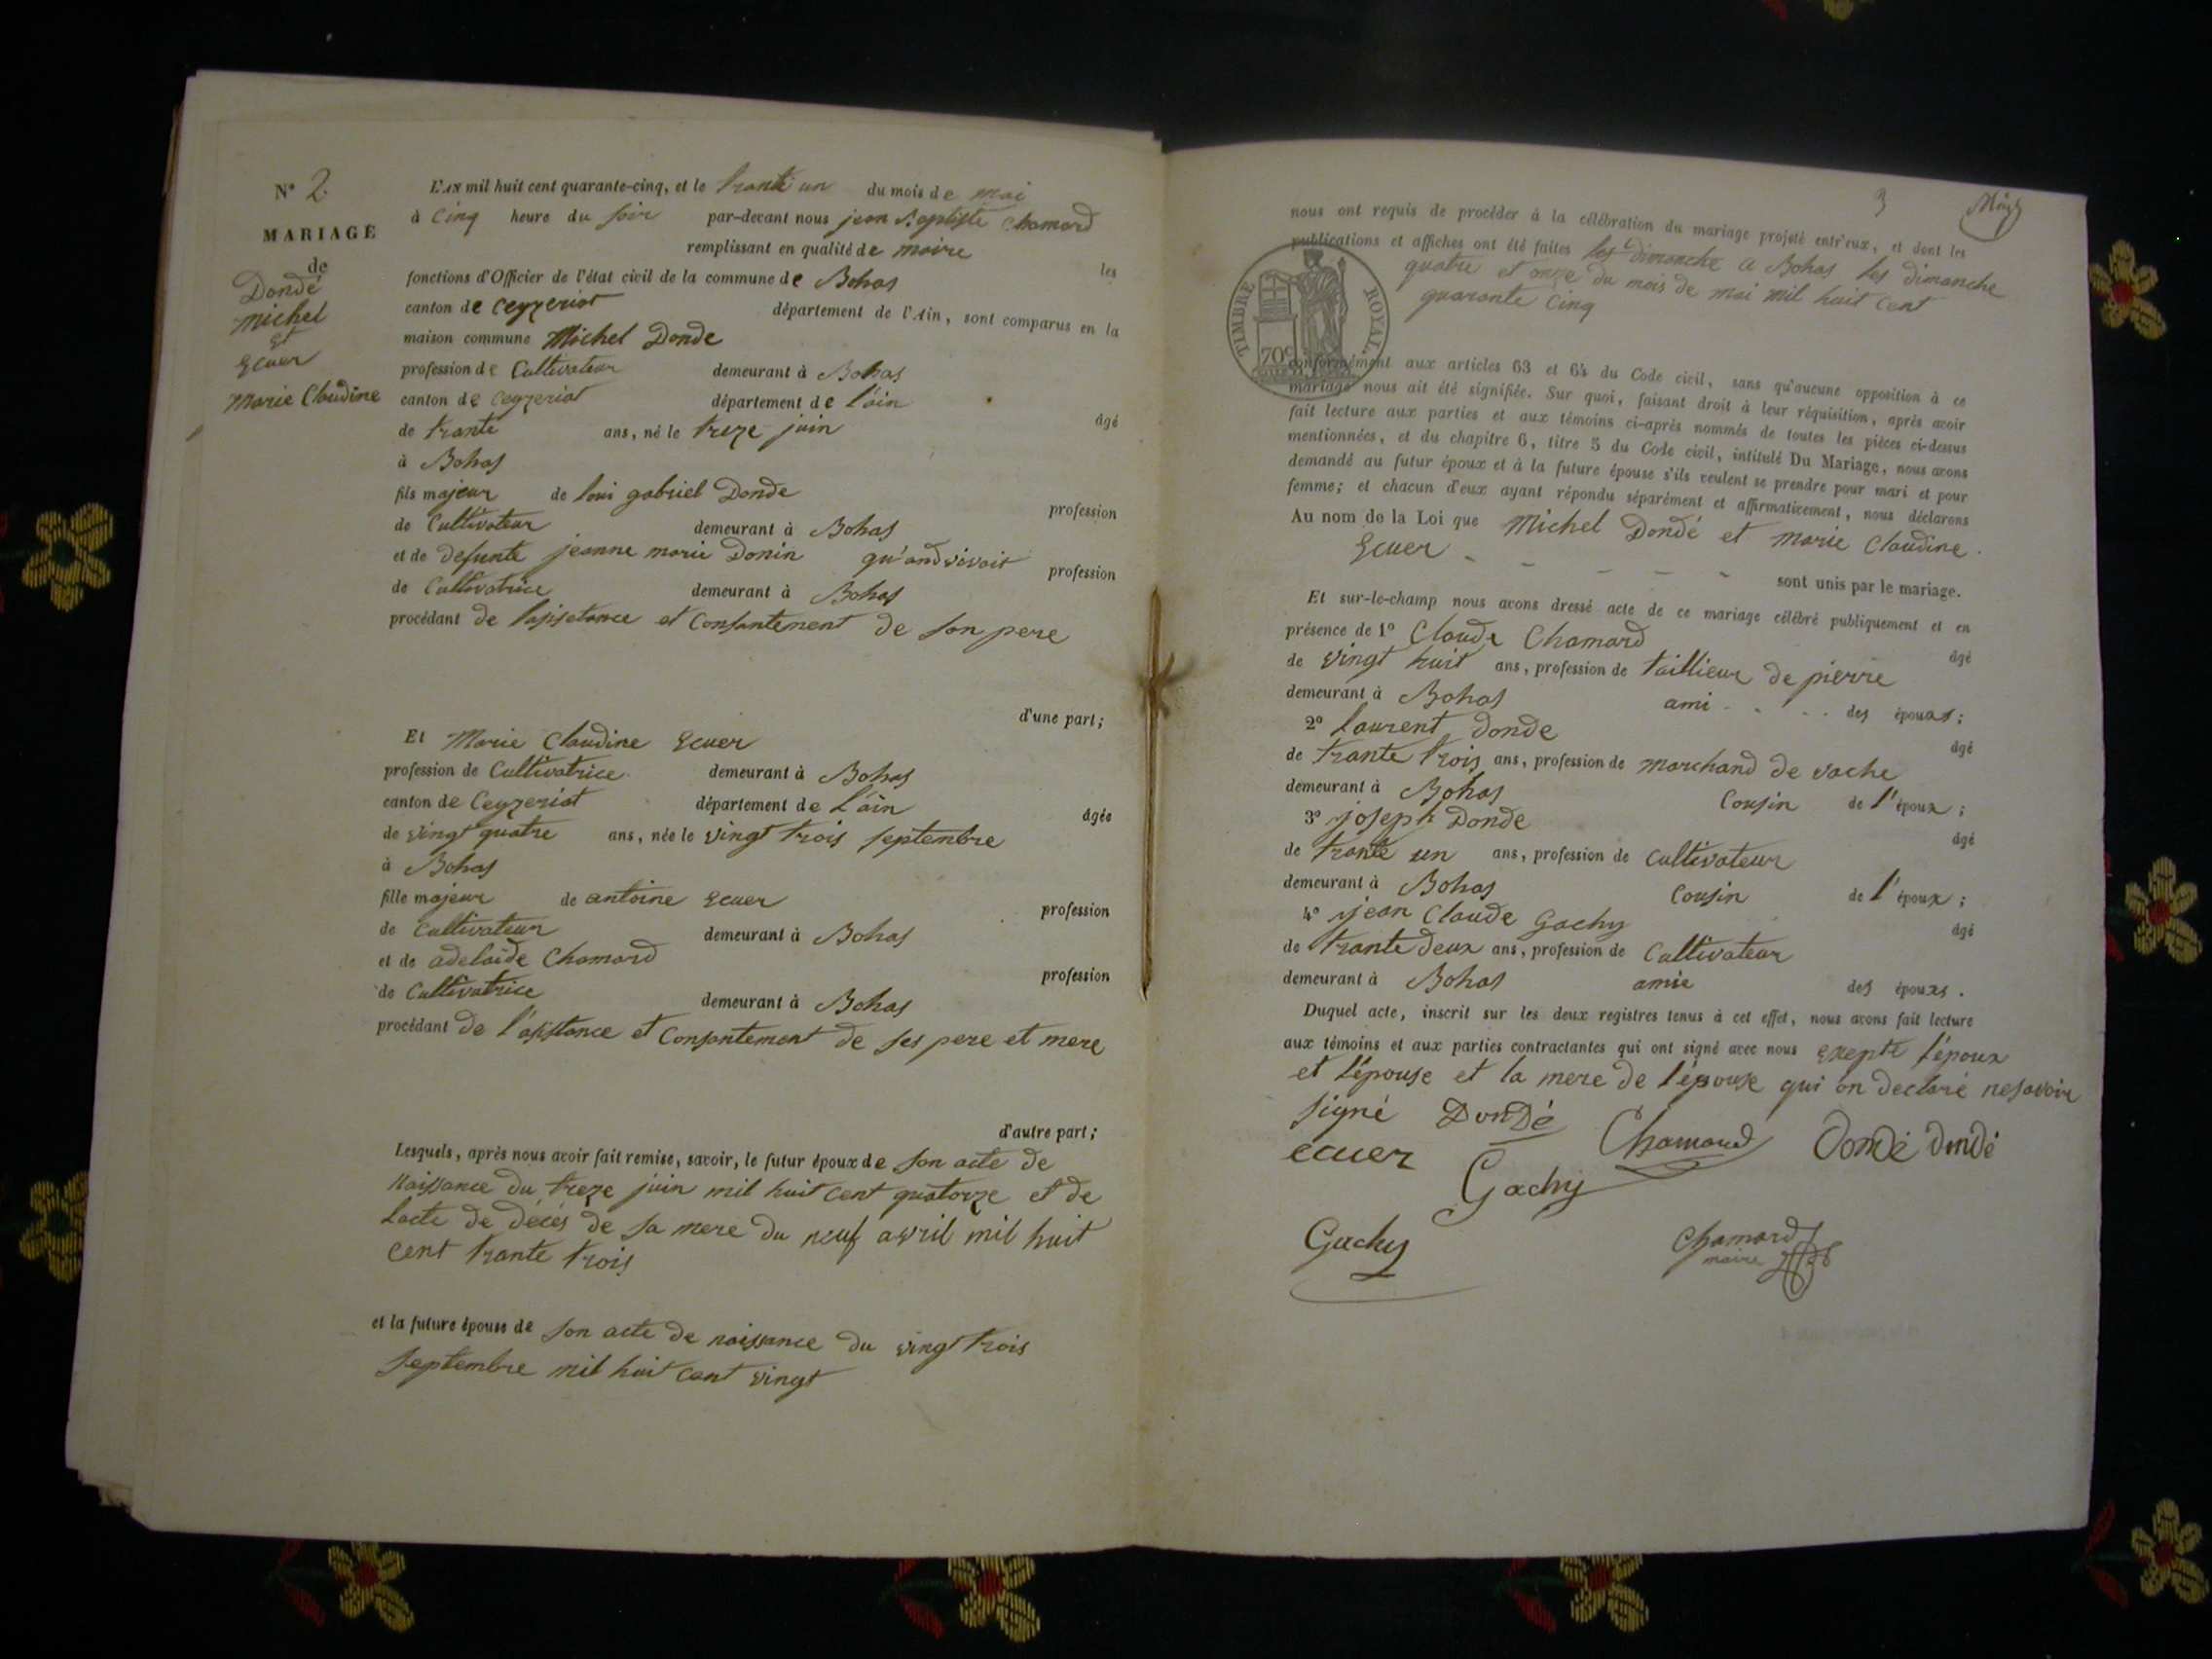 N° 2.
MARIAGE
de
Dondé
michel
et
Ecuer
Marie Claudine
L'AN mil huit cent quarante-cinq, et le trante un du mois de mai
à cinq heure du soir par-devant nous jean Baptiste Chamard
remplissant en qualité de maire les
fonctions d'Officier de l'état civil de la commune de Bohas
canton de Ceyzeriat département de l'Ain, sont comparus en la
maison commune Michel Donde
profession de Cultivateur demeurant à Bohas
canton de Ceyzeriat département de l'ain âgé
de trante ans, né le treze juin
à Bohas
fils majeur de loui gabriel Donde profession
de Cultivateur demeurant à Bohas
et de defunte jeanne marie Donin qu'and vivait profession
de Cultivatrice demeurant à Bohas
procédant de l'assetance et Consantement de son pere
d'une part;
Et Marie Claudine Ecuer
profession de Cultivatrice demeurant à Bohas
canton de Ceyzeriat département de L'ain âgée
de vingt quatre ans, née le vingt trois septembre
à Bohas
fille majeur de antoine Ecuer profession
de Cultivateur demeurant à Bohas
et de adelaide Chamard profession
de Cultivatrice demeurant à Bohas
procédant de l'assistance et Consantement de ses pere et mere
d'autre part;
Lesquels, après nous avoir fait remise, savoir, le futur époux de son acte de
naissance du treze juin mil huit cent quatorze et de
lacte de décés de sa mere du neuf avril mil huit
cent trante trois
et la future épouse de son acte de naissance du vingt trois
septembre mil huit cent vingt
3
nous ont requis de procéder à la célébration du mariage projeté entr'eux, et dont les
publications et affiches ont été faites les Dimanche a Bohas les dimanche
quatre et onze du mois de mai mil huit cent
quarante cinq
TIMBRE ROYAL
70c
conformément aux articles 63 et 64 du Code civil, sans qu'aucune opposition à ce
mariage nous ait été signifiée. Sur quoi, faisant droit à leur réquisition, après avoir
fait lecture aux parties et aux témoins ci-après nommés de toutes les pièces ci-dessus
mentionnées, et du chapitre 6, titre 5 du Code civil, intitulé Du Mariage, nous avons
demandé au futur époux et à la future épouse s'ils veulent se prendre pour mari et pour
femme; et chacun d'eux ayant répondu séparément et affirmativement, nous déclarons
Au nom de la Loi que Michel Dondé et marie Claudine
Ecuer - - - - - sont unis par le mariage.
Et sur-le-champ nous avons dressé acte de ce mariage célébré publiquement et en
présence de 1° Claude Chamard âgé
de vingt huit ans, profession de taillieur de pierre
demeurant à Bohas ami des épouxs;
2° laurent Donde âgé
de trante trois ans, profession de marchand de vache
demeurant à Bohas Cousin de l'époux;
3° joseph Donde âgé
de trante un ans, profession de Cultivateur
demeurant à Bohas Cousin de l'époux;
4° jean Claude Gachy âgé
de trante deux ans, profession de Cultivateur
demeurant à Bohas amie des épouxs.
Duquel acte, inscrit sur les deux registres tenus à cet effet, nous avons fait lecture
aux témoins et aux parties contractantes qui ont signé avec nous exepté l'époux
et l'épouse et la mere de l'épouse qui on declaré ne savoir
signé Dondé Chamard Dondé dondé
ecuer Gachy
Gachy Chamard
maire